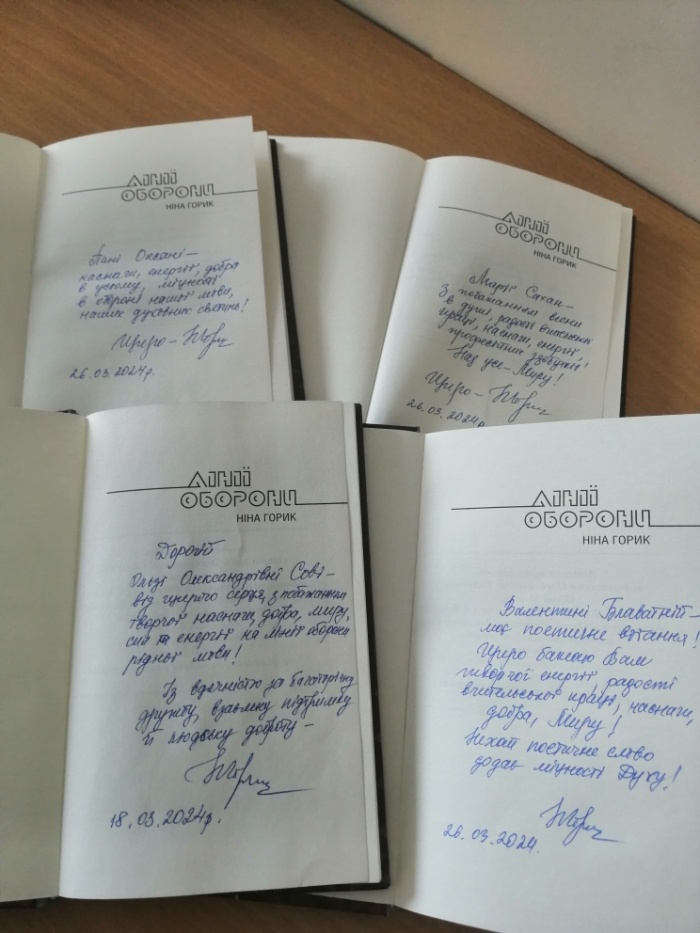 ЛІНІЇ
ОБОРОНИ
НІНА ГОРИК
Пані Оксані –
наснаги, енергії, добра
в усьому, міцності
в обороні нашої мови,
наших духовних святинь!
Щиро –
26.03.2024р.
ЛІНІЇ
ОБОРОНИ
НІНА ГОРИК
Марії Сахан –
З побажанням весни
в душі, радості
праці, наснаги, енергії,
професійних здобутків!
Над усе – Миру!
Щиро –
26.03.2024р.
ЛІНІЇ
ОБОРОНИ
НІНА ГОРИК
Дорогій
Ользі Олександрівні Сові –
від щирого серця, з побажанням
творчої наснаги, добра, миру,
сил та енергії на лінії оборони
рідної мови!
Із вдячністю за багаторічну
дружбу, взаємну підтримку
й людську доброту –
18.03.2024р.
ЛІНІЇ
ОБОРОНИ
НІНА ГОРИК
Валентині Блаватній –
моє поетичне вітання!
Щиро бажаю Вам
творчої енергії, радості
вчительської праці, наснаги,
добра, Миру!
Нехай поетичне слово
додає міцності Духу!
26.03.2024.